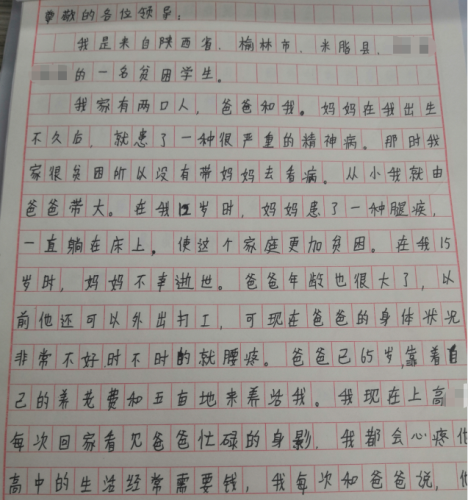 尊敬的各位领导：
我是来自陕西省，榆林市，米脂县，
的一名贫困学生。
我家有两口人，爸爸和我。妈妈在我出生
不久后，就患了一种很严重的精神病。那时我
家很贫困所以没有带妈妈去看病。从小我就由
爸爸带大。在我12岁时，妈妈患了一种腿疾，
一直躺在床上。使这个家庭更加贫困。在我15
岁时，妈妈不幸逝世。爸爸年龄也很大了，以
前他还可以外出打工，可现在爸爸的身体状况
非常不好时不时的就腰疼。爸爸已65岁，靠着自
己的养老费和五亩地来养活我。我现在上高
每次回家看见爸爸忙碌的身影，我都会心疼他
高中的生活经常需要钱，我每次和爸爸说，他